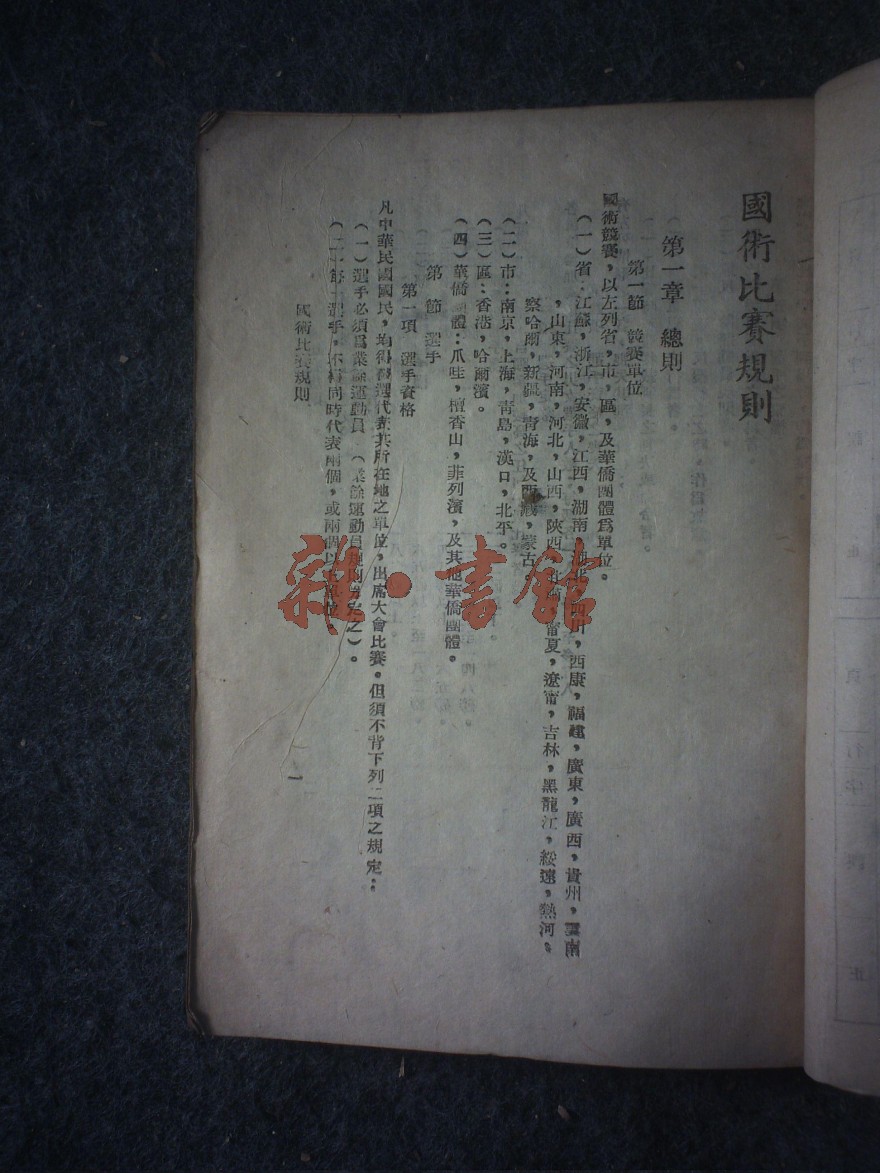 國術比賽規則
第一章 總則
第一節 競賽單位
國術競賽，以左列省，市，區，及華僑團體爲單位。
（一）省：江蘇，浙江，安徽，江西，湖南，湖北，四川，西康，福建，廣東，廣西，貴州，雲南
，山東，河南，河北，山西，陝西，甘肅，甯夏，遼甯，吉林，黑龍江，綏遠，熱河。
察哈爾，新疆，青海，及西藏，蒙古。
（二）市：南京，上海，青島，漢口，北平。
（三）區：香港，哈爾濱。
（四）華僑團體：爪哇，檀香山，菲列濱，及其他華僑團體。
第 節 選手
第一項 選手資格
凡中華民國國民，均得 選代表其所在地之單位，出席大會比賽。但須不背下列二項之規定：
（一）選手必須爲業餘運動員（業餘運動員規則另定之）。
（二）每一選手，不得同時代表兩個，或兩個以上單位。
國術比賽規則
一
雜·書館